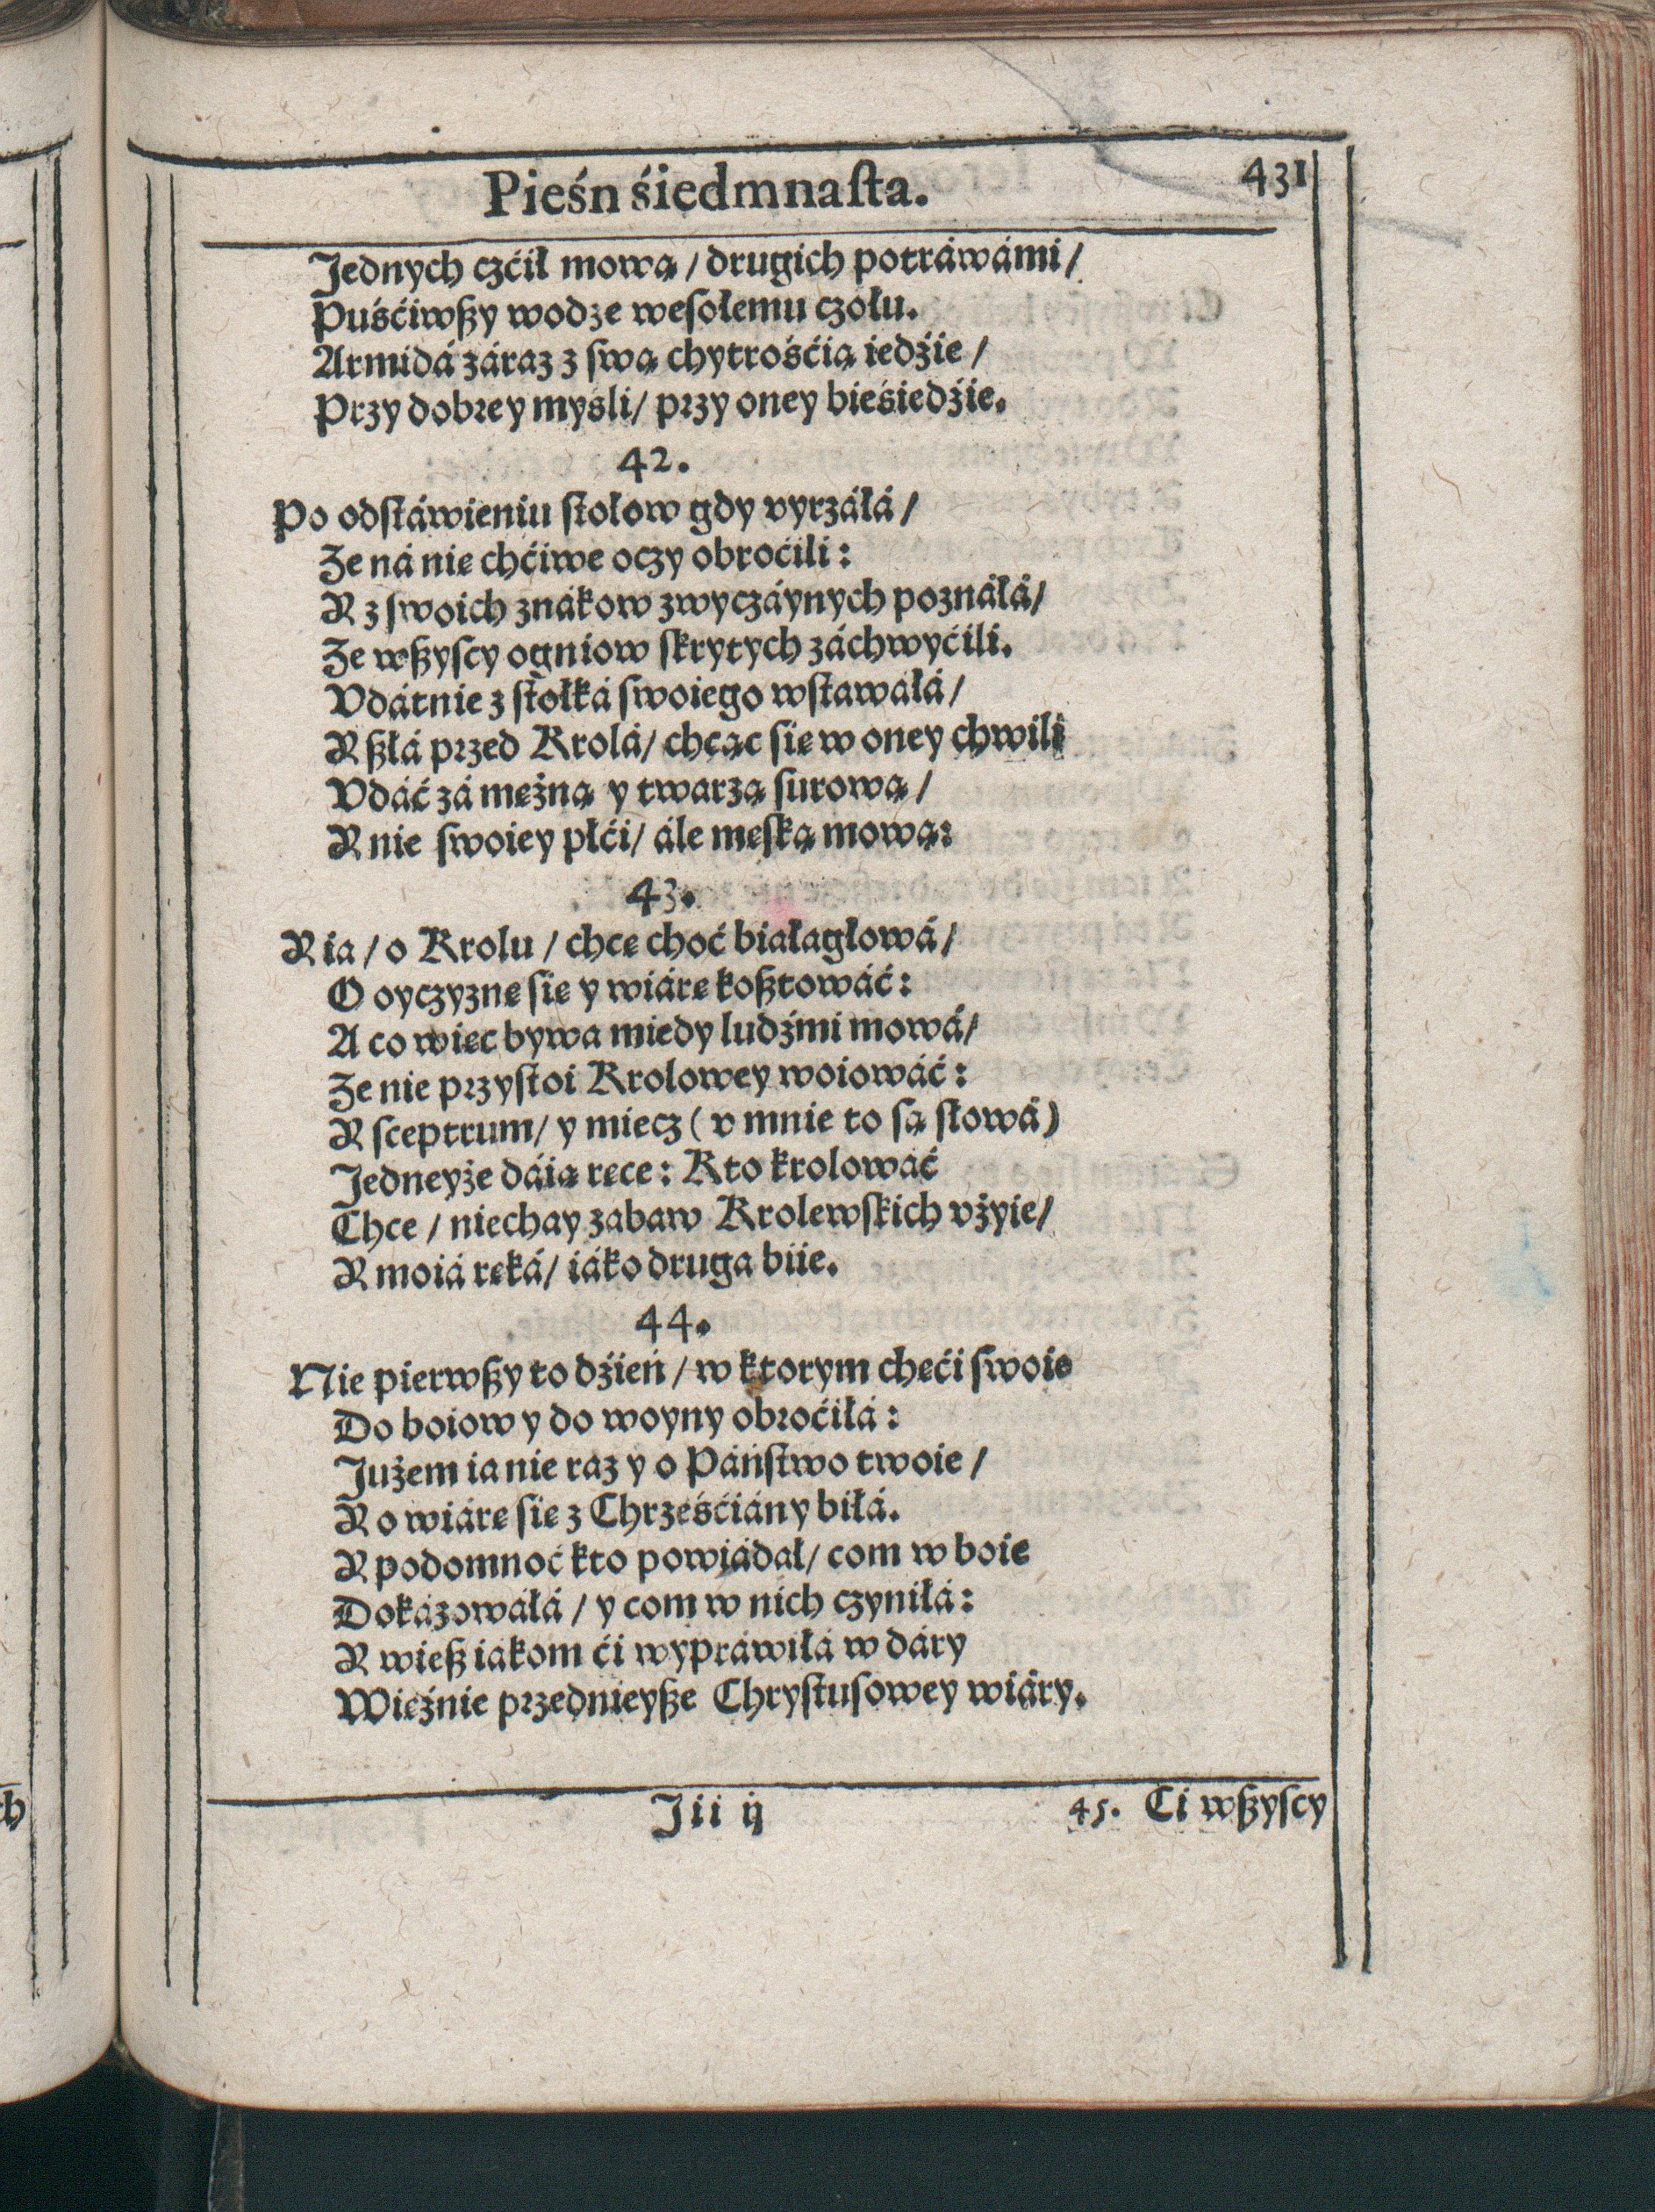 Pieśn śiedmnaſta. 431
Jednych czćił mową / drugich potráwámi /
Puśćiwſzy wodze weſołemu czołu.
Armidá záraz z ſwą chytrośćią iedźie /
Przy dobrey myśli / przy oney bieśiedźie.
42.
Po odſtáwieniu ſtołow gdy vyrzáłá /
Że ná nię chćiwe oczy obroćili:
Y z ſwoich znákow zwyczáynych poznáłá /
Że wſzyſcy ogniow ſkrytych záchwyćili.
Vdátnie z ſtołká ſwoiego wſtawáłá /
Y ſzłá przed Krolá / chcąc ſię w oney chwili
Vdáć zá mężną y twarzą ſurową /
Y nie ſwoiey płći / ále męſką mową:
43.
Y ia / o Krolu / chcę choć białagłowá /
O oyczyznę ſię y wiárę koſztowáć:
A co więc bywa miedy ludźmi mowá /
Że nie przyſtoi Krolowey woiowáć:
Y ſceptrum / y miecz ( v mnie to ſą ſłowá )
Jedneyże dáią ręce: Kto krolowáć
Chce / niechay zabaw Krolewſkich vżyie /
Y moiá ręká / iáko druga biie.
44.
Nie pierwſzy to dźień / w ktorym chęći ſwoie
Do boiow y do woyny obroćiłá:
Jużem ia nie raz y o Páńſtwo twoie /
Y o wiárę ſię z Chrześćiány biłá.
Y podomnoć kto powiádał / com w boie
Dokázowáłá / y com w nich czyniłá:
Y wieſz iákom ći wypráwiłá w dáry
Więźnie przednieyſze Chryſtuſowey wiáry.
Jii ij 45. Ci wſzyſcy